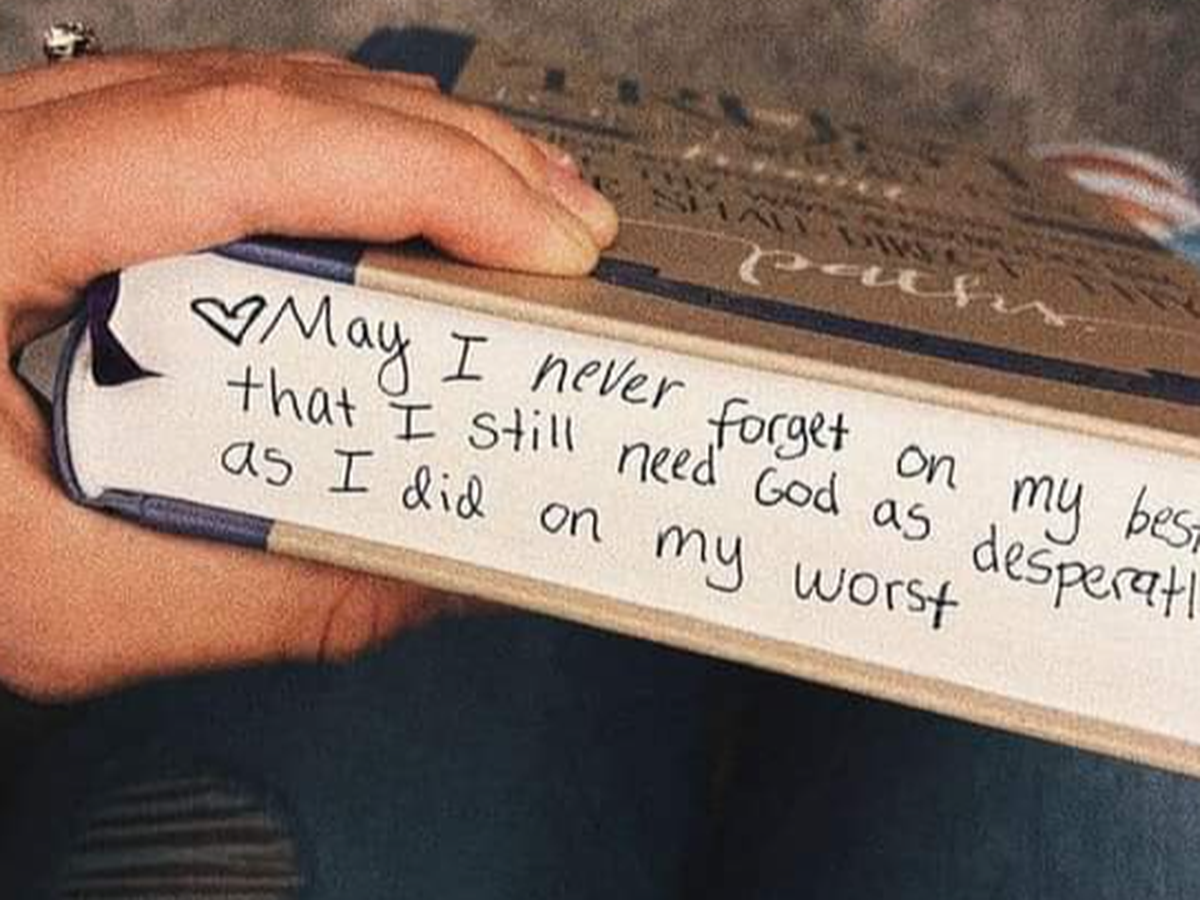 ♡May I never forget on my best
that I still need God as desperatl
as I did on my worst
SHALL DIRECT
paths